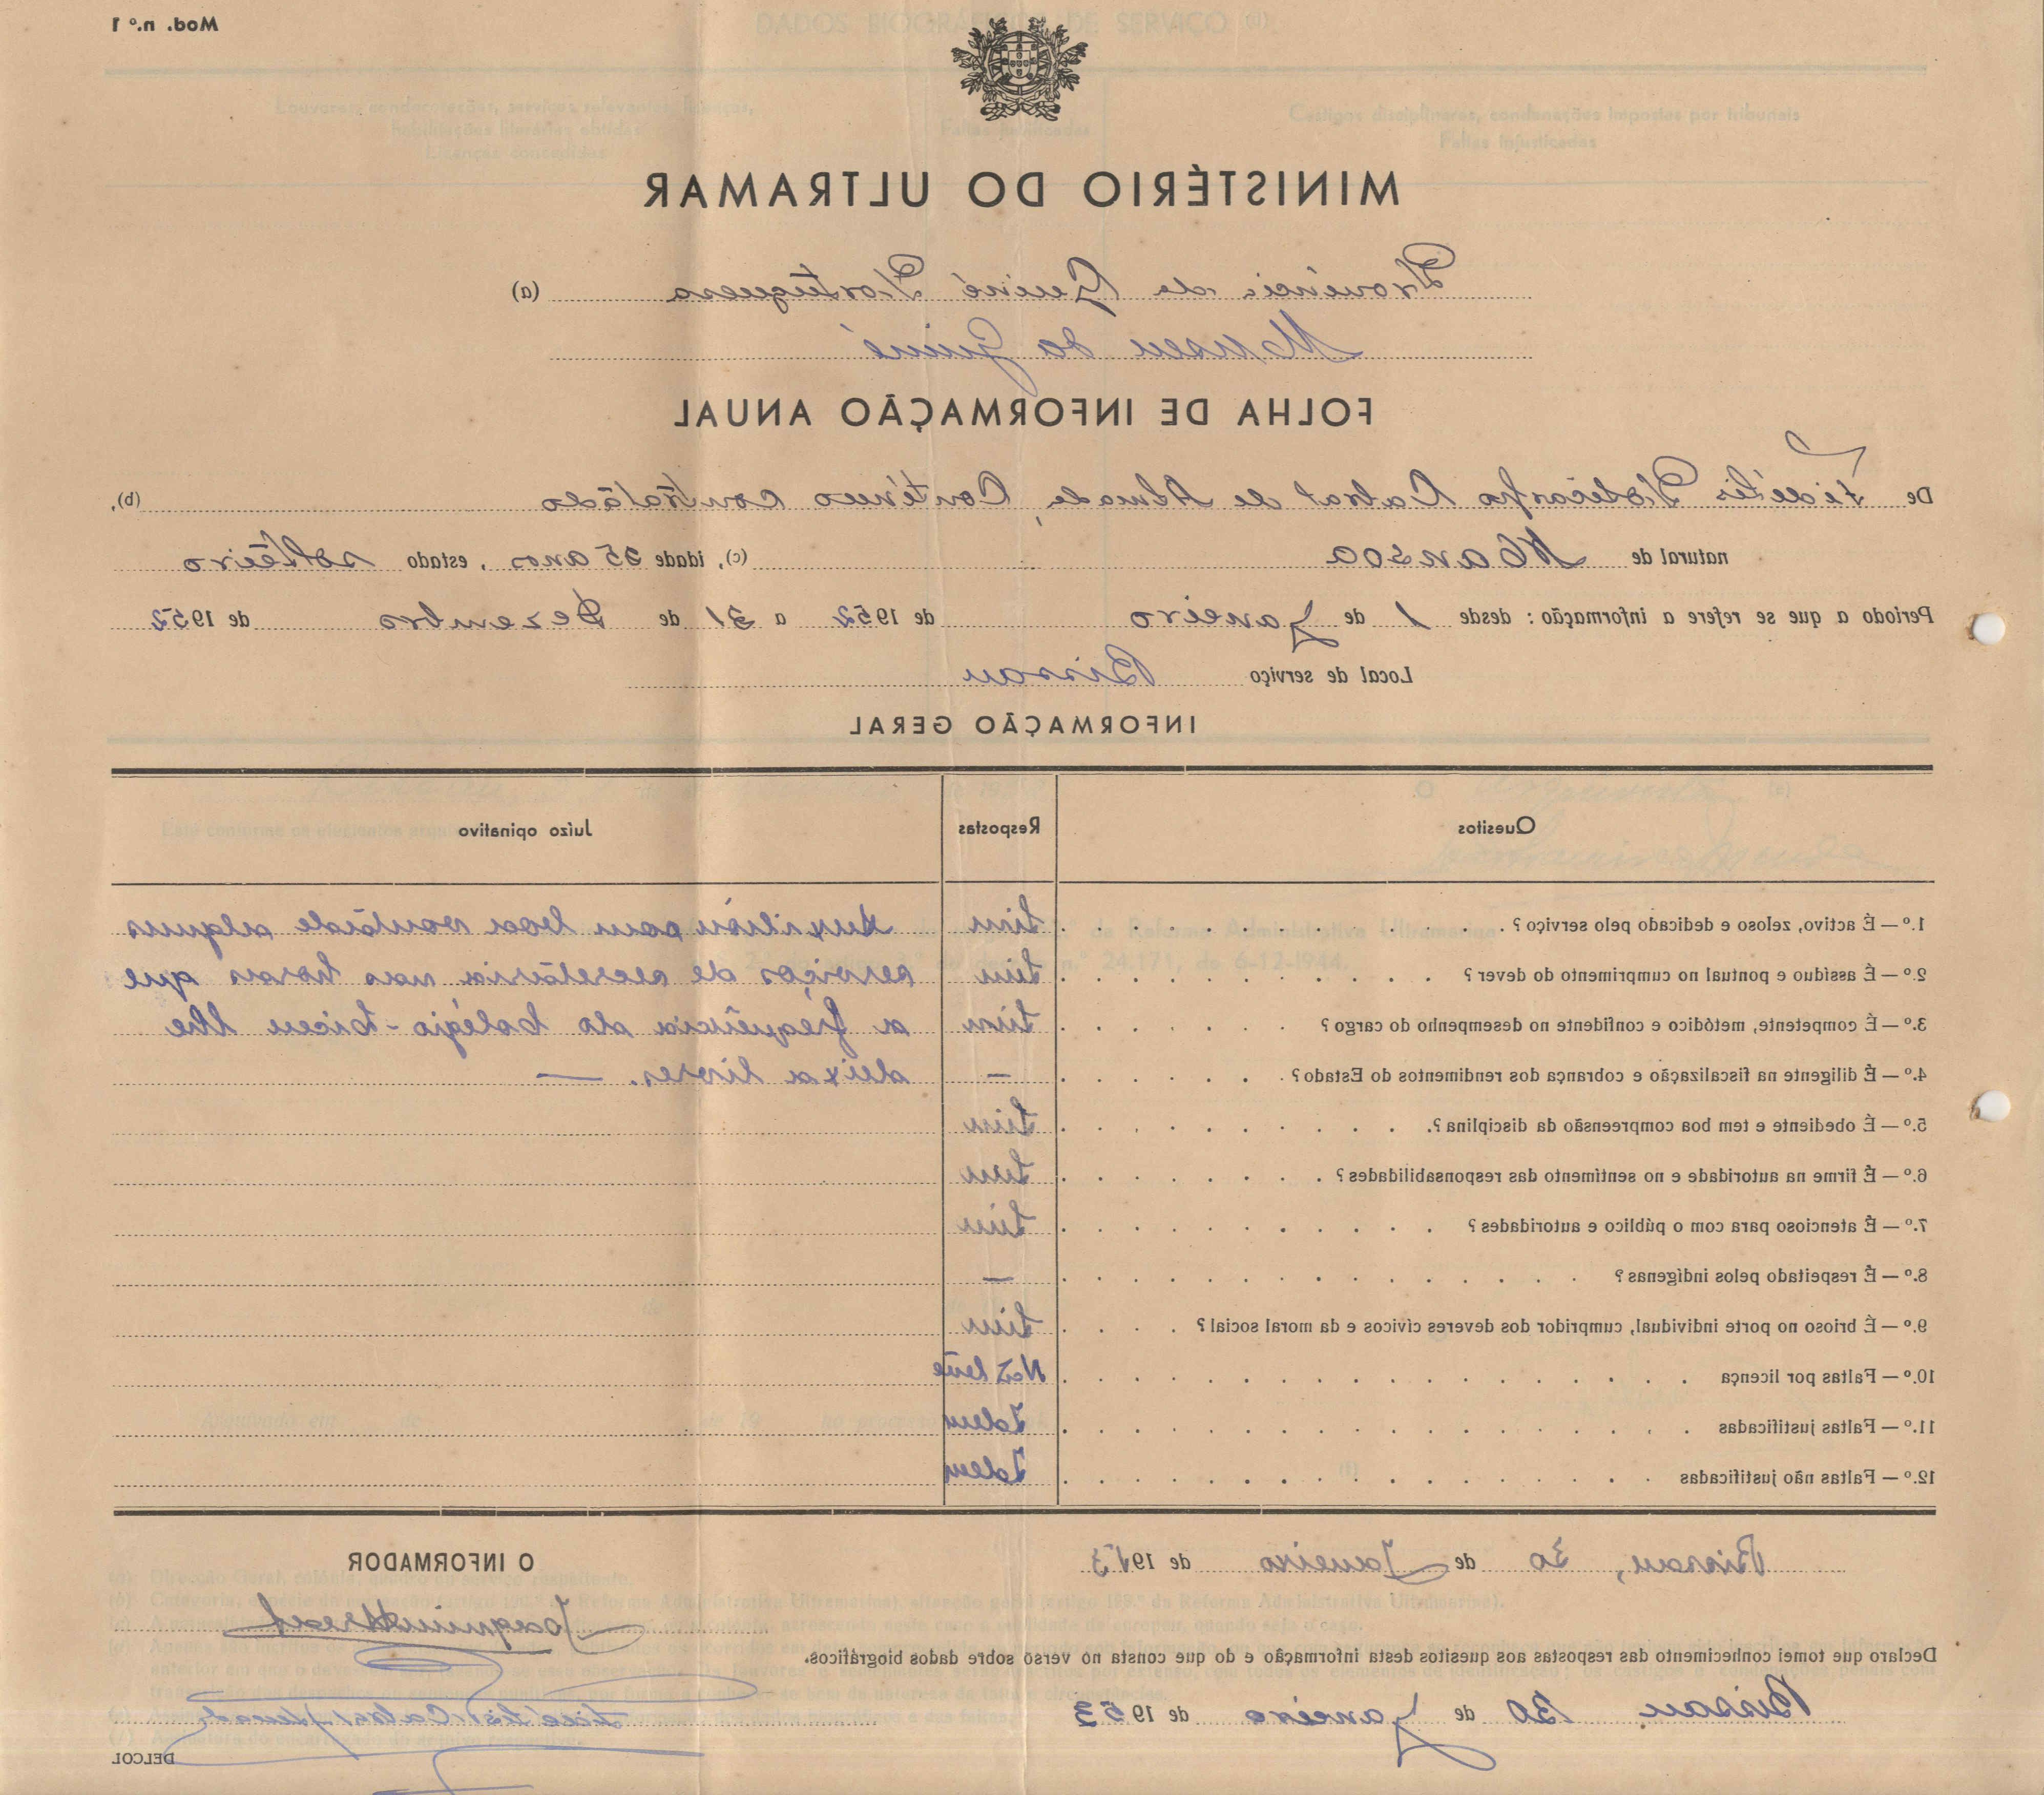 Mod. n.º 1
MINISTÉRIO DO ULTRAMAR
Província da Guiné Portuguesa (a)
Museu da Guiné
FOLHA DE INFORMAÇÃO ANUAL
De Fidélis Policarpo Cabral de Almada, Contínuo contratado (b),
natural de Mansoa (c), idade 25 anos, estado solteiro
Período a que se refere a informação: desde 1 de Janeiro de 1952 a 31 de Dezembro de 1952
Local de serviço Bissau
INFORMAÇÃO GERAL
Quesitos Respostas Juízo opinativo
1.º — É activo, zeloso e dedicado pelo serviço? Sim Auxiliou com boa vontade alguns
2.º — É assíduo e pontual no cumprimento do dever? Sim serviços de secretaria nas horas que
3.º — É competente, metódico e confidente no desempenho do cargo? Sim a frequência do Colégio-Liceu lhe
4.º — É diligente na fiscalização e cobrança dos rendimentos do Estado? — deixa livres. —
5.º — É obediente e tem boa compreensão da disciplina? Sim
6.º — É firme na autoridade e no sentimento das responsabilidades? Sim
7.º — É atencioso para com o público e autoridades? Sim
8.º — É respeitado pelos indígenas? —
9.º — É brioso no porte individual, cumpridor dos deveres cívicos e da moral social? Sim
10.º — Faltas por licença Não teve
11.º — Faltas justificadas Idem
12.º — Faltas não justificadas Idem
Bissau, 30 de Janeiro de 1953
O INFORMADOR
Joaquim
Declaro que tomei conhecimento das respostas aos quesitos desta informação e do que consta no verso sobre dados biográficos.
Bissau 30 de Janeiro de 1953
Fidélis Cabral Almada
DELCOL